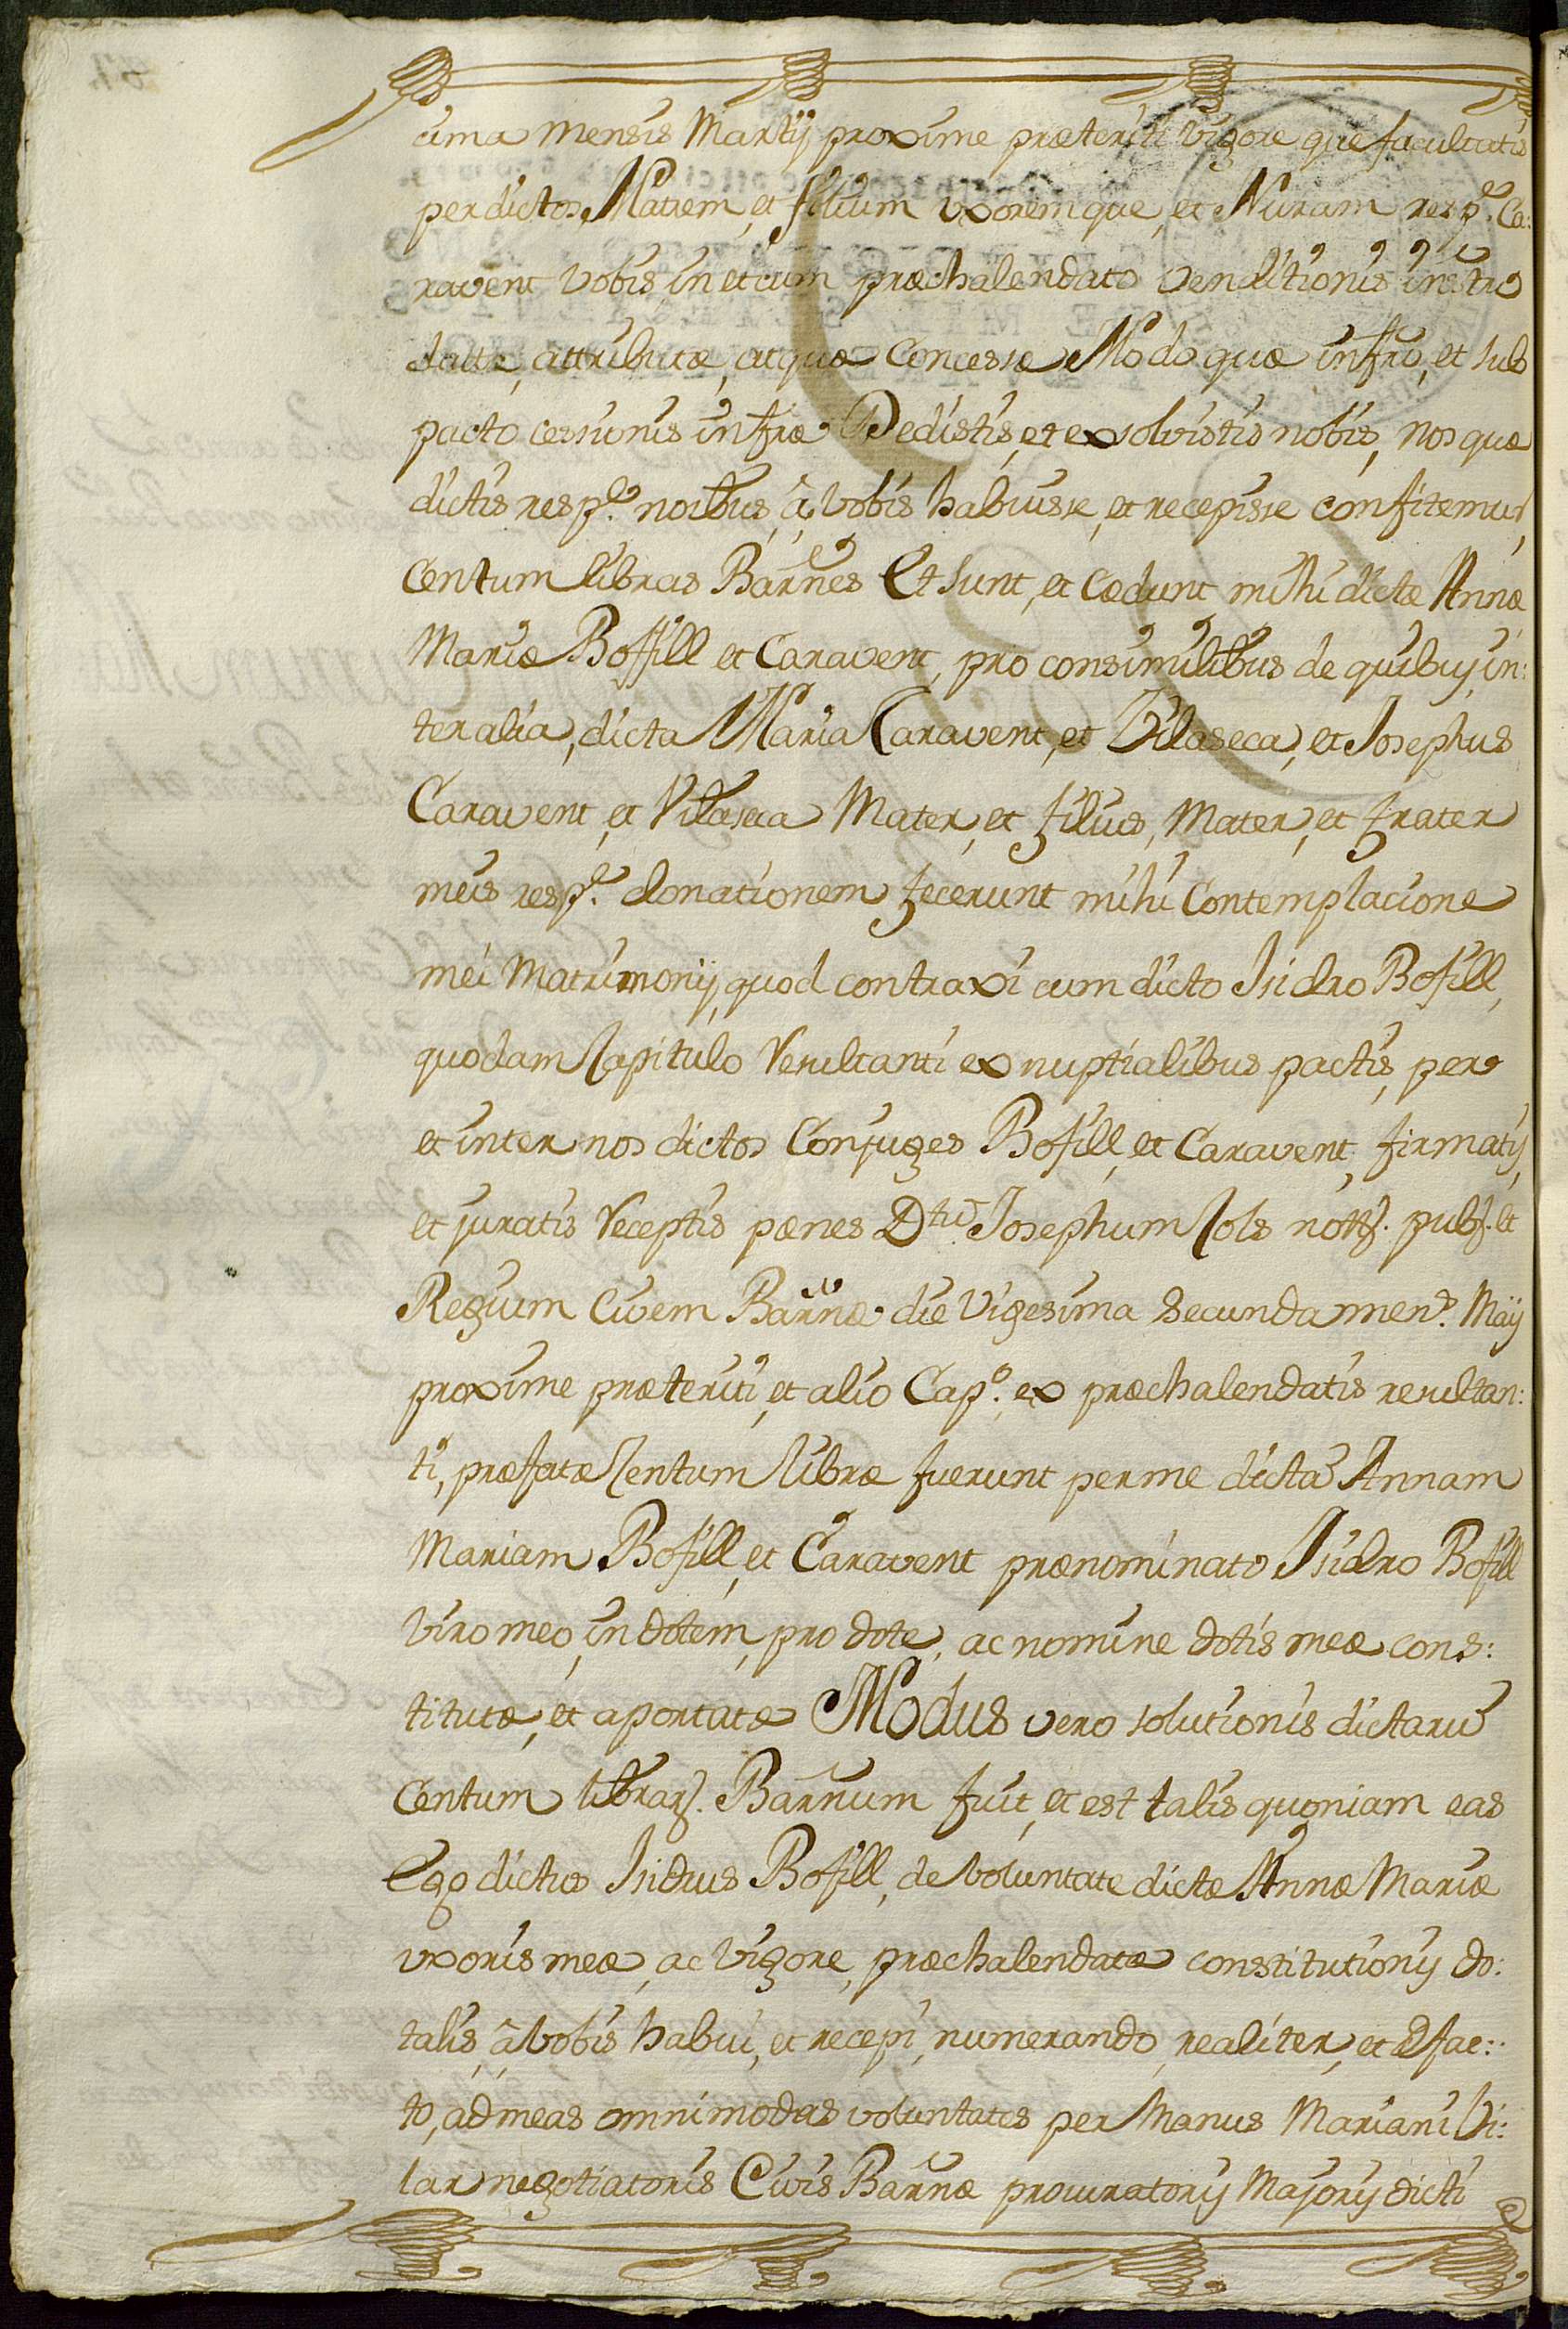 cima mensis Martij proxime præteriti vigore que facultatis
per dictos Matrem, et filium vxoremque, et Nuram resp.e Ca:
ravent vobis in et cum præchalendato venditionis instro
datæ, attributæ, atquæ concessæ Modo quæ infro, et sub
pacto cessionis infræ Dedistis, et exsolvistis nobis, nosquæ
dictis resp.e noibus, â vobis habuisse, et recepisse confitemur,
Centum libras Barnes Et sunt, et cedunt mihi dictæ Annæ
Mariæ Boffill et Caravent, pro consimilibus de quibus, in:
ter alia, dicta Maria Caravent, et Vilaseca, et Josephus
Caravent, et Vilaseca Mater, et filius, Mater, et frater
meis resp.e donationem fecerunt mihi Contemplacione
mei Matrimonij, quod contraxi cum dicto Isidro Bofill,
quodam Capitulo resultanti ex nuptialibus pactis, per
et inter nos dictos Conjuges Bofill, et Caravent, firmatis,
et juratis receptis pænes Dtũ. Josephum Cols nott. pub. et
Regium Civem Barnæ die vigesima secunda mens. Maij
proxime præteriti, et alio Cap.o ex præchalendatis resultan:
ti, præfatæ Centum libræ fuerunt per me dictã Annam
Mariam Bofill, et Caravent prænominato Isidro Bofill
viro meo, in dotem, pro dote, ac nomine dotis meæ cons:
titutæ, et aportatæ Modus vero solutionis dictarũ
Centum librar. Barnum fuit, et est talis quoniam eas
Ego dictus Isidrus Bofill, de voluntate dictæ Annæ Mariæ
vxoris meæ, ac vigore, præchalendatæ constitutionis do:
talis, â vobis habui, et recepi, numerando, realiter, et d fac:
to, ad meas omnimodas voluntates per manus Mariani Vi:
lar negotiatoris Civis Barnæ procuratoris Majoris dicti